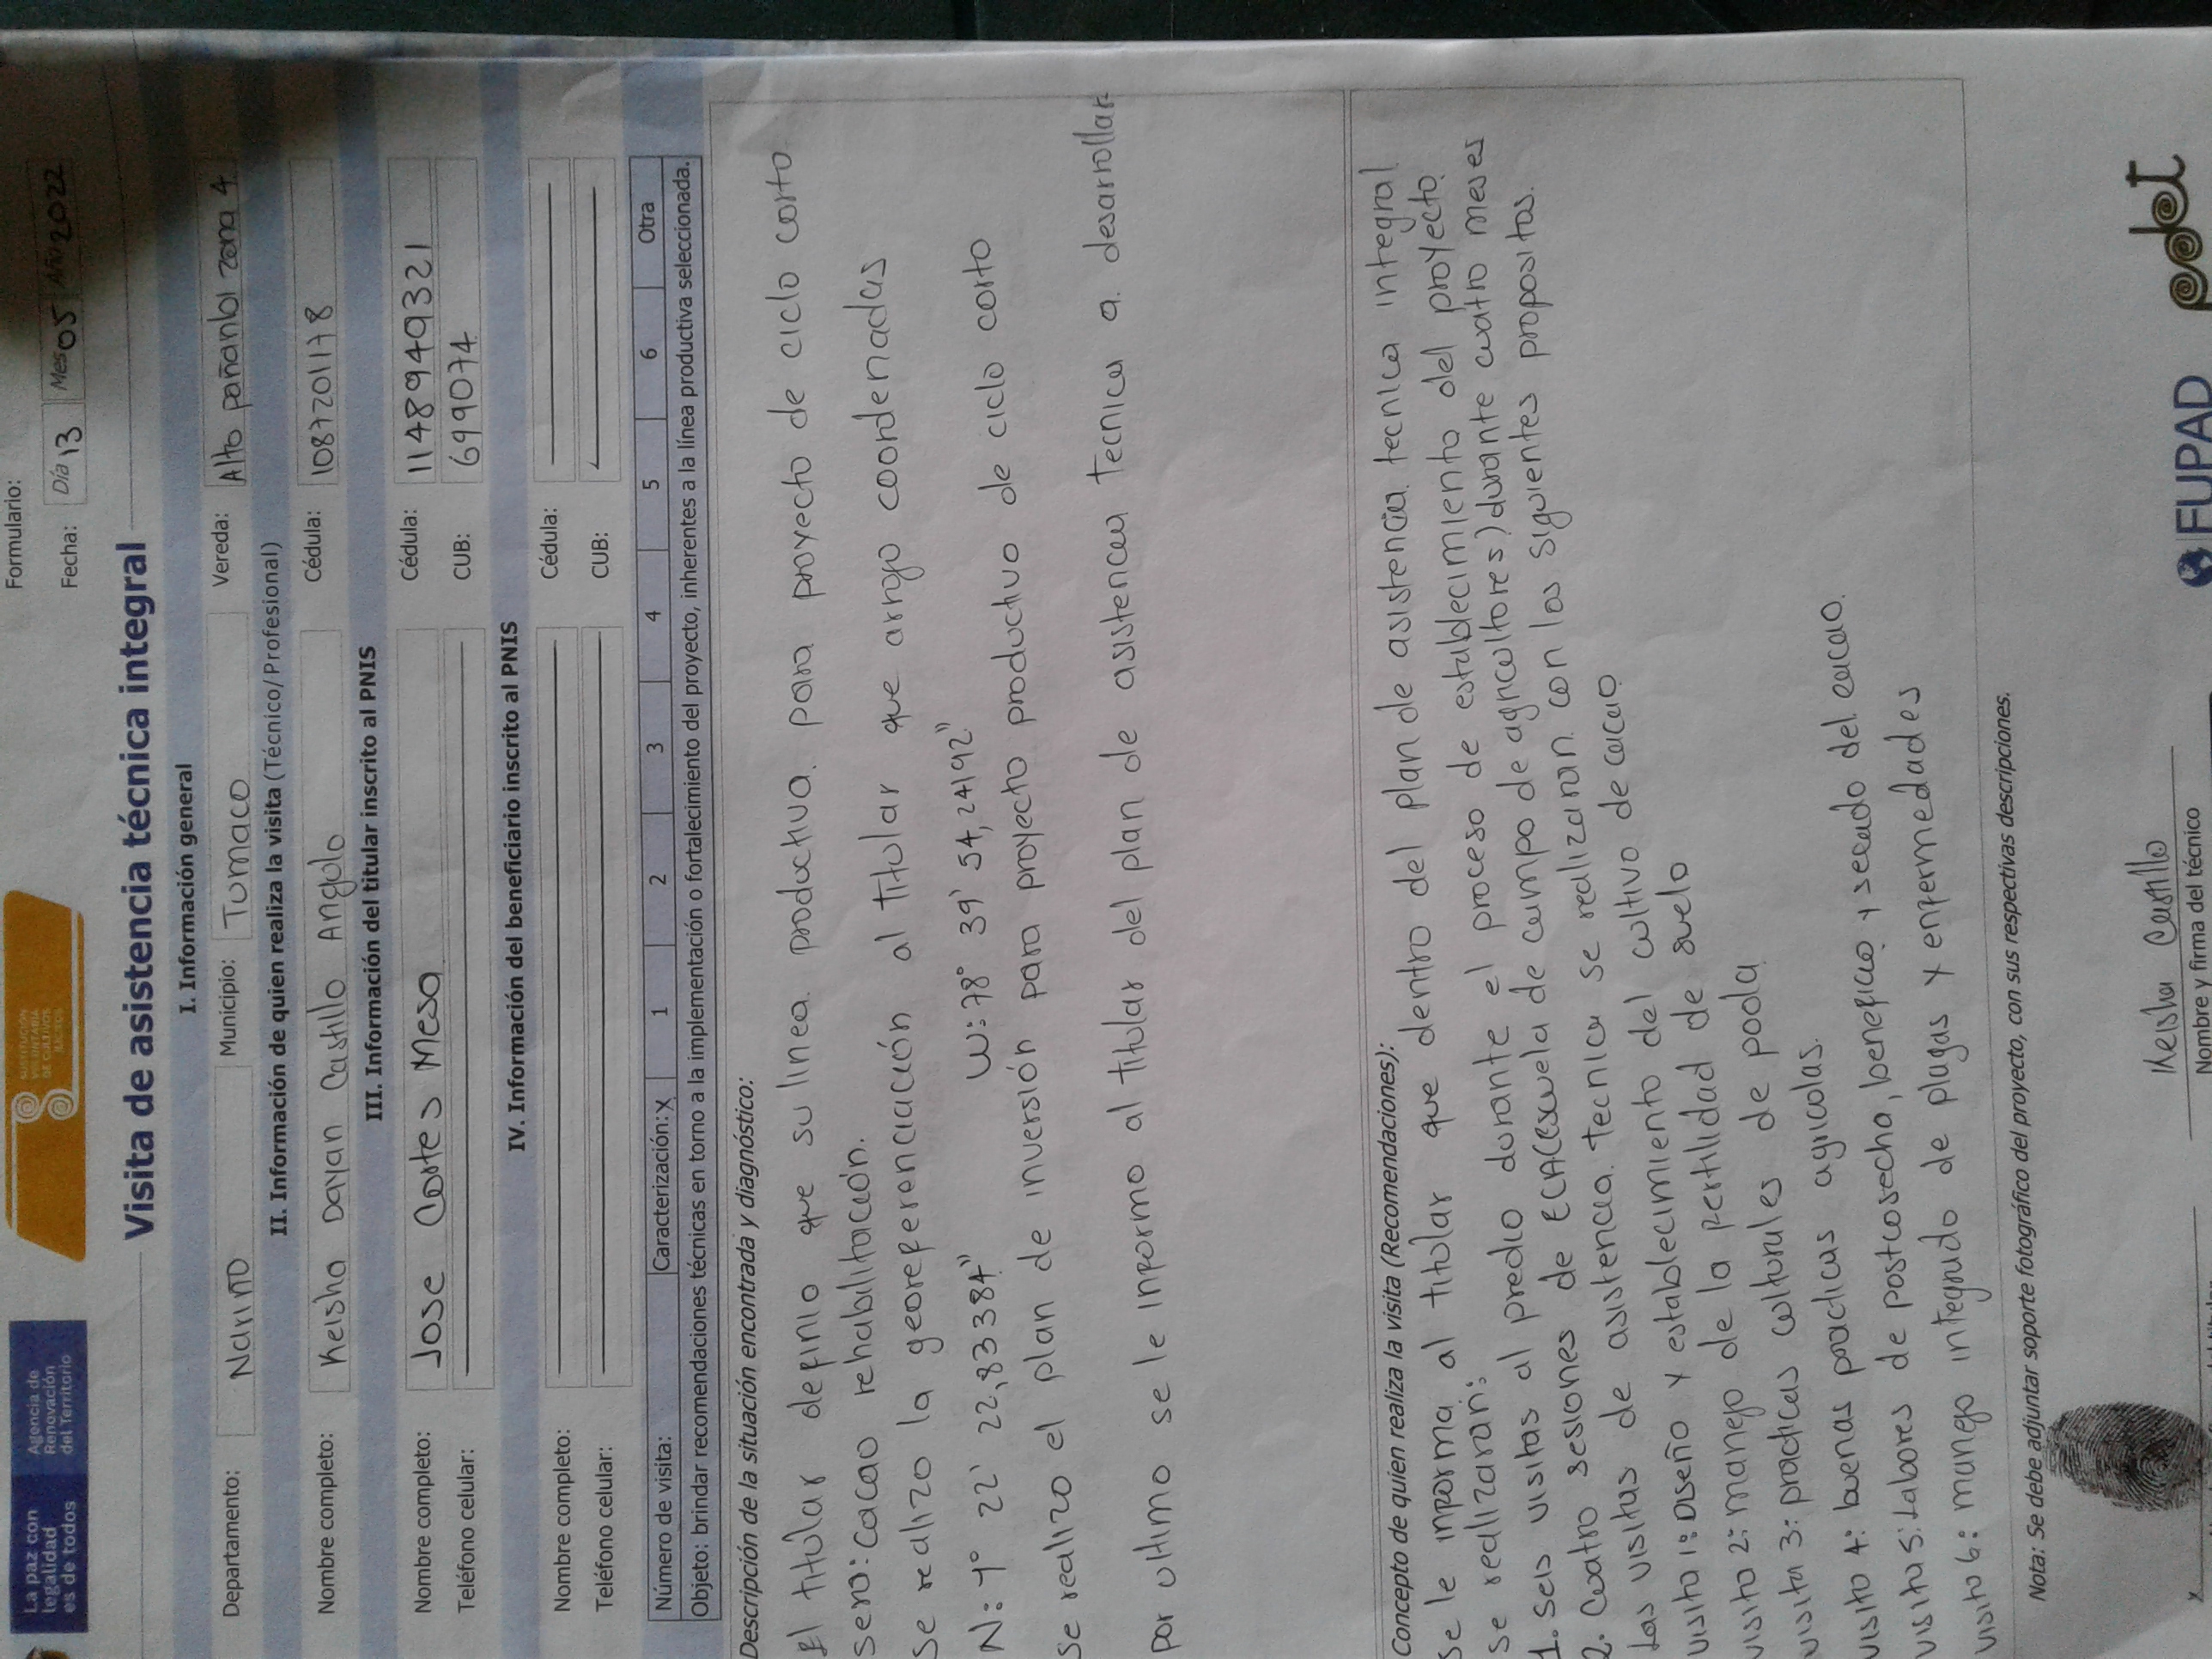 La paz con
legalidad
es de todos
Agencia de
Renovación
del Territorio
SUSTITUCIÓN
VOLUNTARIA
DE CULTIVOS
ILÍCITOS
Formulario:
Fecha: Día 13 Mes 05 Año 2022
Visita de asistencia técnica integral
I. Información general
Departamento: Nariño Municipio: Tumaco Vereda: Alto pañambi zona 4
II. Información de quien realiza la visita (Técnico/Profesional)
Nombre completo: Keisha Dayan Castillo Angulo Cédula: 1087201178
III. Información del titular inscrito al PNIS
Nombre completo: Jose Cortes Mesa Cédula: 1148949321
Teléfono celular: CUB: 699074
IV. Información del beneficiario inscrito al PNIS
Nombre completo: Cédula:
Teléfono celular: CUB:
Número de visita: Caracterización: X 1 2 3 4 5 6 Otra
Objeto: brindar recomendaciones técnicas en torno a la implementación o fortalecimiento del proyecto, inherentes a la línea productiva seleccionada.
Descripción de la situación encontrada y diagnóstico:
El titular definio que su linea productiva para proyecto de ciclo corto
sera: cacao rehabilitación.
se realizo la georeferenciación al titular que arrojo coordenadas
N: 1° 22' 22,83384" W: 78° 39' 54,24192"
se realizo el plan de inversión para proyecto productivo de ciclo corto
por ultimo se le informo al titular del plan de asistencia tecnica a desarrollar
Concepto de quien realiza la visita (Recomendaciones):
se le informa al titular que dentro del plan de asistencia tecnica integral
se realizaran:
1. seis visitas al predio durante el proceso de establecimiento del proyecto.
2. cuatro sesiones de ECA(escuela de campo de agricultores) durante cuatro meses
Las visitas de asistencia tecnica se realizaran con los siguientes propositos.
visita 1: Diseño y establecimiento del cultivo de cacao
visita 2: manejo de la fertilidad de suelo
visita 3: practicas culturales de poda
visita 4: buenas practicas agricolas.
visita 5: Labores de postcosecha, beneficio y secado del cacao.
visita 6: manejo integrado de plagas y enfermedades
Nota: Se debe adjuntar soporte fotográfico del proyecto, con sus respectivas descripciones.
x
Keisha Castillo
Nombre y firma del técnico
FUPAD
pdet